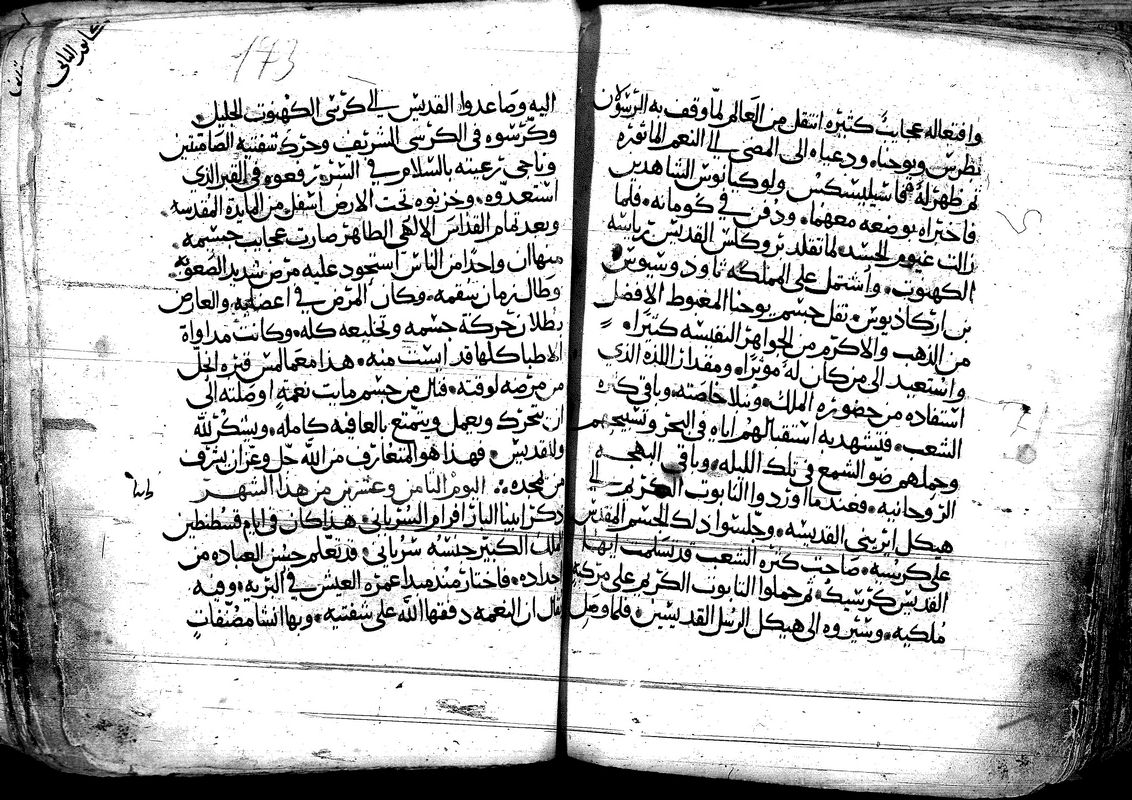 وافتعاله عجايب كثيره انتقل من العالم لما وقف به الرسولان
بطرس ويوحنا ودعياه الى المضى الى النعم الماثوره
ثم ظهر له فيما سيليسكس ولوكيانوس الشاهدين
فاخبراه بوضعه معهما ودفن في كومانه فلما
زالت غيوم الحسد لما تقلد بروكلس القديس برياسه
الكهنوت واشتمل على المملكه ثاودوسيوس
بن اركاديوس نقل جسم يوحنا المغبوط الافضل
من الذهب والاكرم من الجواهر النفيسه كثيرا
واستعيد الى من كان له موثرا ومقدار اللذه الذي
استفاده من حضوره الملك ونبلا خاصته وباقي كثره
الشعب فتشهد به استقبالهم اياه في البحر وتسبيحهم
وحملهم ضو الشمع في تلك الليله وباقي البهجه
الروحانيه فعندما اوردوا التابوت الكريم الى
هيكل ايريني القديسه وجلسوا ذلك الجسم المقدس
على كرسيه صاحت كثره الشعب قد تسلمت ايها
القديس كرسيك ثم حملوا التابوت الكريم على مركبه
ملكيه وسيروه الى هيكل الرسل القديسين فلما وصل
كانون الثاني
143
اليه وصاعدوا القديس الى كرسي الكهنوت الجليل
وكرسوه في الكرسي الشريف وحرك شفتيه الصامتتين
وناجى رعيته بالسلام في السر رفعوه في القبر الذي
استعدوه وخزنوه تحت الارض اسفل من المايده المقدسه
وبعد تمام القداس الالاهي الطاهر صارت عجايب جسمه
منها ان واحدا من الناس استحود عليه مرض شديد الصعوبه
وطال زمان سقمه وكان المرض في اعضايه والعارض
بطلان حركة جسمه وتخليعه كله وكانت مداواة
الاطبا كلها قد ايست منه هذا معما لمس قبره انحل
من مرضه لوقته فنال من جسم مايت نعمة اوصلته الى
ان يتحرك ويعمل ويتمتع بالعافيه كامله ويشكر الله
والقديس فهذا هو المتعارف من الله جل وعز ان يشرف
من يمجده اليوم الثامن وعشرين من هذا الشهر
ذكر ابينا البار افرام السرياني هذا كان في ايام قسطنطين
الملك الكبير جنسه سرياني قد تعلم حسن العباده من
اجداده فاختار منذ مبدا عمره العيش في البريه وفيه
يقال ان النعمه دفقها الله على شفتيه وبها انشا مصنفات